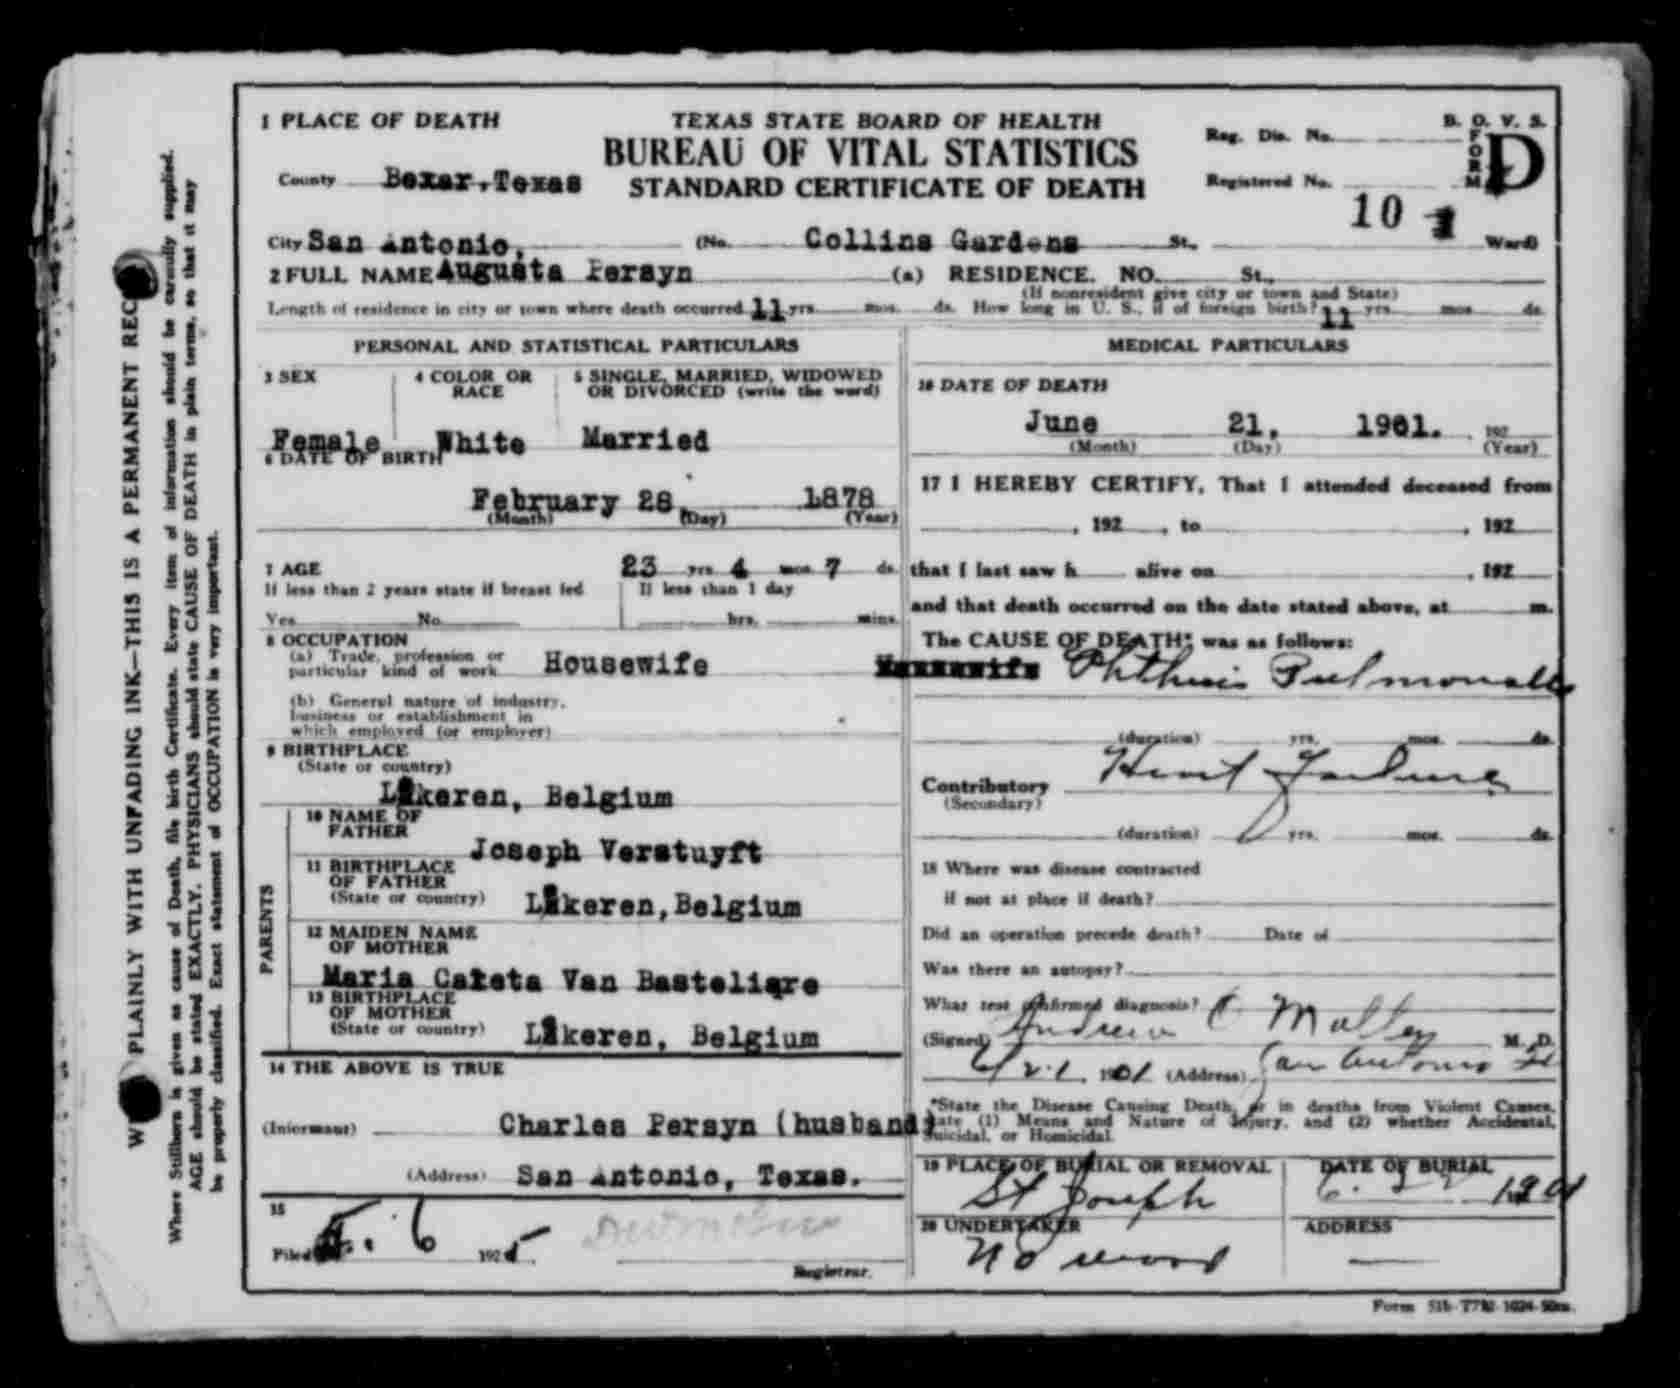 1 PLACE OF DEATH
TEXAS STATE BOARD OF HEALTH
BUREAU OF VITAL STATISTICS
STANDARD CERTIFICATE OF DEATH
B. O. V. S.
FORM D
Reg. Dis. No.
Registered No.
10
County Bexar, Texas
City San Antonio, (No. Collins Gardens St., Ward)
2 FULL NAME Augusta Persyn (a) RESIDENCE. NO. St.,
(If nonresident give city or town and State)
Length of residence in city or town where death occurred 11 yrs. mos. ds. How long in U. S., if of foreign birth? 11 yrs. mos. ds.
PERSONAL AND STATISTICAL PARTICULARS
3 SEX
4 COLOR OR RACE
5 SINGLE, MARRIED, WIDOWED OR DIVORCED (write the word)
Female White Married
6 DATE OF BIRTH
February 28, 1878
(Month) (Day) (Year)
7 AGE 23 yrs. 4 mos. 7 ds.
If less than 2 years state if breast fed
If less than 1 day
Yes No
hrs. mins.
8 OCCUPATION
(a) Trade, profession or
particular kind of work Housewife
(b) General nature of industry,
business or establishment in
which employed (or employer)
9 BIRTHPLACE
(State or country)
Lokeren, Belgium
PARENTS
10 NAME OF FATHER
Joseph Verstuyft
11 BIRTHPLACE OF FATHER
(State or country) Lokeren, Belgium
12 MAIDEN NAME OF MOTHER
Maria Van
13 BIRTHPLACE OF MOTHER
(State or country) Lokeren, Belgium
14 THE ABOVE IS TRUE
(Informant) Charles Persyn (husband)
(Address) San Antonio, Texas.
15
Filed 6 1925
Registrar.
MEDICAL PARTICULARS
16 DATE OF DEATH
June 21, 1901. 192
(Month) (Day) (Year)
17 I HEREBY CERTIFY, That I attended deceased from
, 192 , to , 192
that I last saw h alive on , 192
and that death occurred on the date stated above, at m.
The CAUSE OF DEATH* was as follows:
Phthisis Pulmonalis
(duration) yrs. mos. ds.
Contributory Heart Failure
(Secondary)
(duration) yrs. mos. ds.
18 Where was disease contracted
if not at place of death?
Did an operation precede death? Date of
Was there an autopsy?
What test confirmed diagnosis?
(Signed) Andrew O Malley M. D.
6/21 1901 (Address) San Antonio
*State the Disease Causing Death, or in deaths from Violent Causes,
state (1) Means and Nature of Injury, and (2) whether Accidental,
Suicidal, or Homicidal.
19 PLACE OF BURIAL OR REMOVAL
St Joseph
DATE OF BURIAL
1901
20 UNDERTAKER
ADDRESS
Form 51b
WRITE PLAINLY WITH UNFADING INK—THIS IS A PERMANENT RECORD
Where Stillborn is given as cause of Death, file birth Certificate. Every item of information should be carefully supplied.
AGE should be stated EXACTLY. PHYSICIANS should state CAUSE OF DEATH in plain terms, so that it may
be properly classified. Exact statement of OCCUPATION is very important.